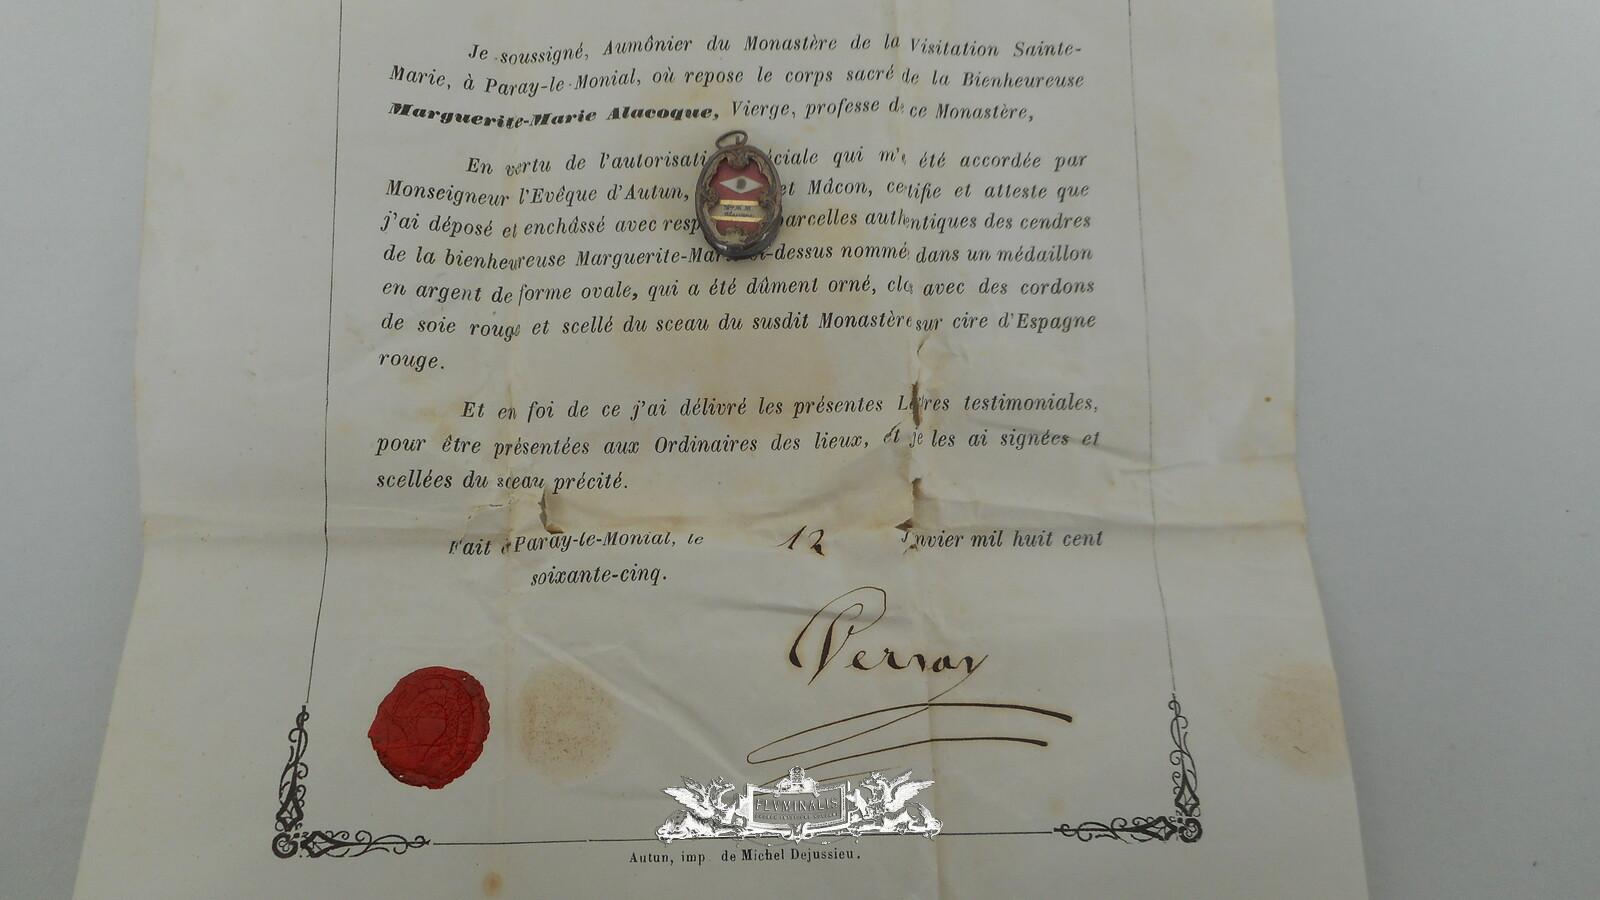 Je soussigné, Aumônier du Monastère de la Visitation Sainte-
Marie, à Paray-le-Monial, où repose le corps sacré de la Bienheureuse
Marguerite-Marie Alacoque, Vierge, professe de ce Monastère,
En vertu de l'autorisati éciale qui m'a été accordée par
Monseigneur l'Evêque d'Autun, et Mâcon, certifie et atteste que
j'ai déposé et enchâssé avec resp parcelles authentiques des cendres
de la bienheureuse Marguerite-Mari ci-dessus nommé dans un médaillon
en argent de forme ovale, qui a été dûment orné, clos avec des cordons
de soie rouge et scellé du sceau du susdit Monastère sur cire d'Espagne
rouge.
Et en foi de ce j'ai délivré les présentes Lettres testimoniales,
pour être présentées aux Ordinaires des lieux, et je les ai signées et
scellées du sceau précité.
Fait à Paray-le-Monial, le 12 Janvier mil huit cent
soixante-cinq.
FLVMINALIS
Autun, imp. de Michel Dejussieu.